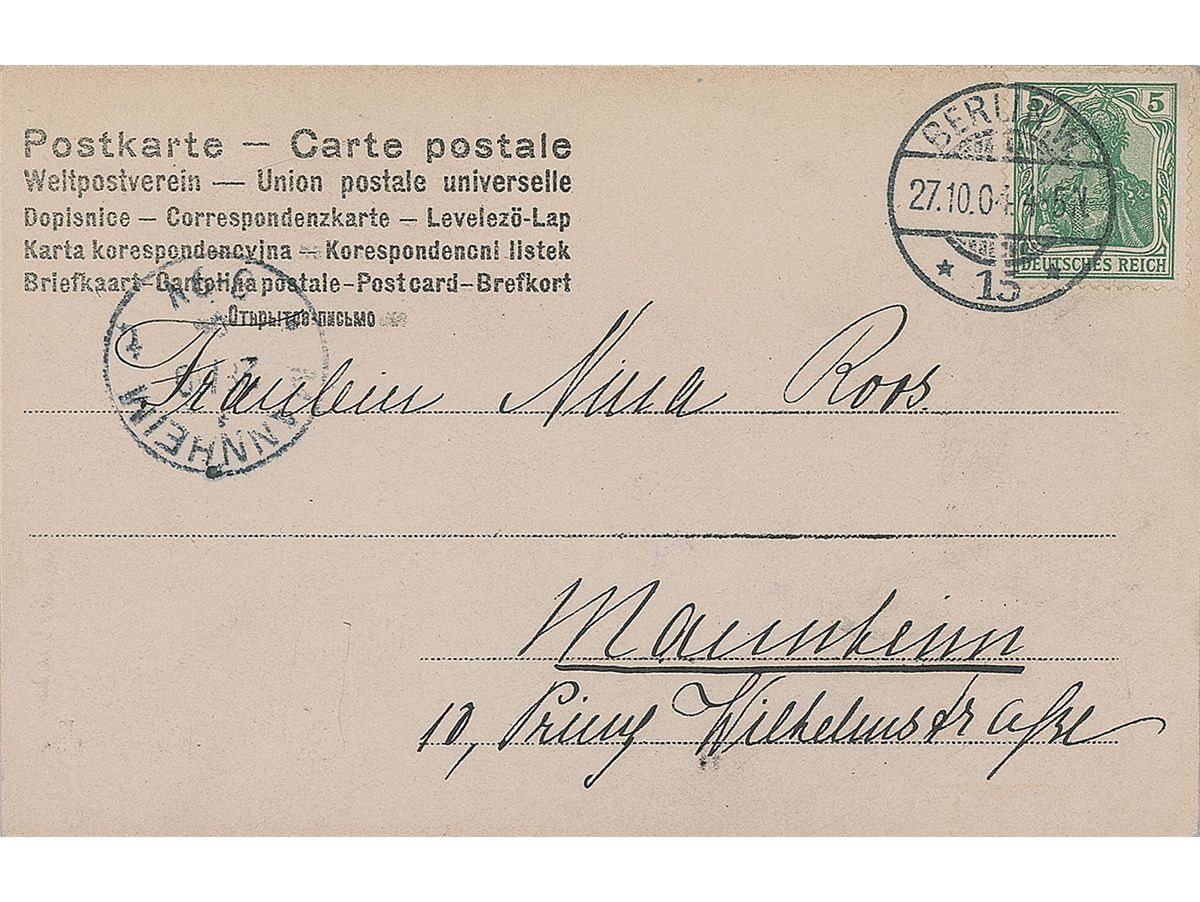 Postkarte – Carte postale
Weltpostverein — Union postale universelle
Dopisnice – Correspondenzkarte – Levelezö-Lap
Karta korespondencyjna – Korespondencni listek
Briefkaart–Cartolina postale–Postcard–Brefkort
Открытое письмо
BERLIN
27.10.04. 4-5N.
* 15 *
5
DEUTSCHES REICH
MANNHEIM
Fräulein Nina Roos.
Mannheim
10, Prinz Wilhelmstraße